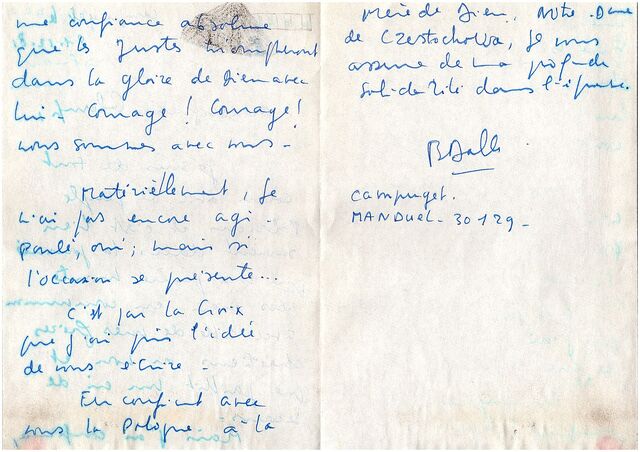 une confiance absolue
que les Justes triompheront
dans la gloire de Dieu avec
lui. Courage ! Courage !
nous sommes avec vous -
Matériellement, je
n'ai pas encore agi
parlé, oui ; mais si
l'occasion se présente...
c'est par la Croix
que j'ai pris l'idée
de vous écrire -
En confiant avec
vous la Pologne à la
Mère de Dieu, Notre-Dame
de Czestochowa, je vous
assure de ma profonde
solidarité dans l'épreuve.
campuget.
MANDUEL - 30129 -